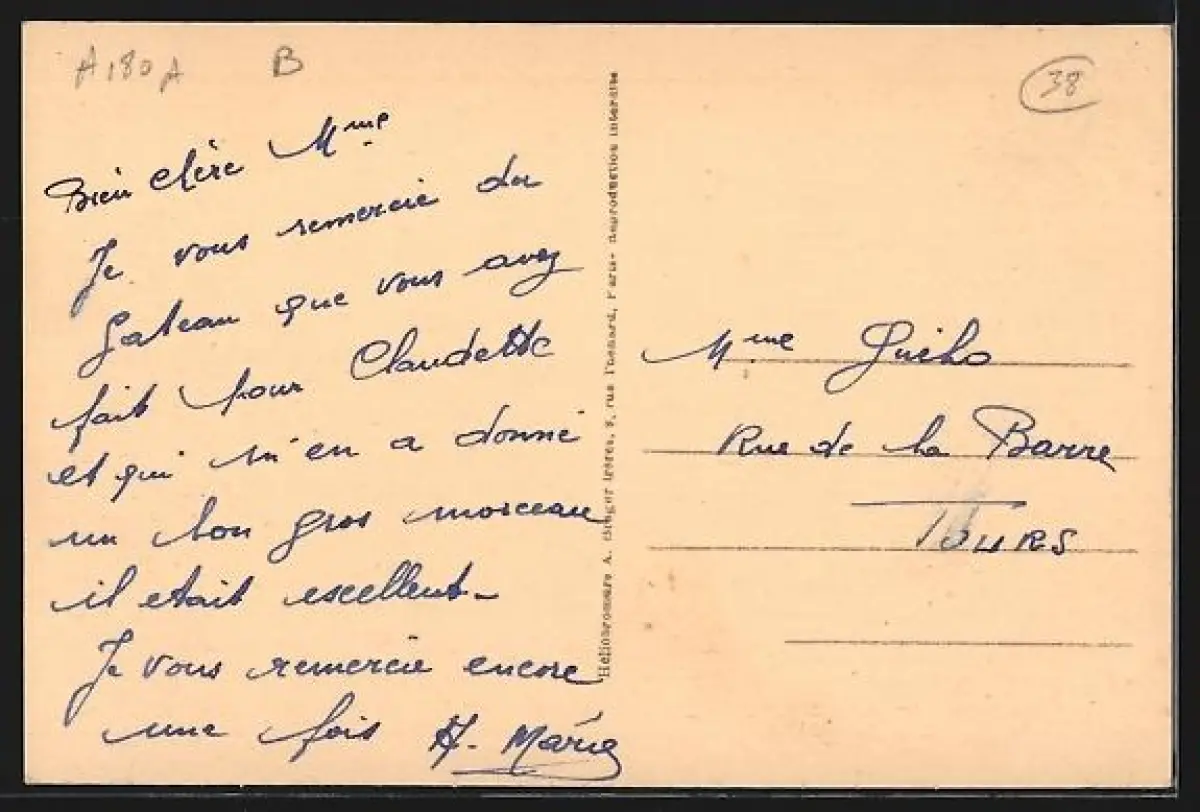 A180A B
38
Bien chère Mme
Je vous remercie du
gateau que vous avez
fait pour Claudette
et qui m'en a donné
un bon gros morceau
il etait excellent_
Je vous remercie encore
une fois A. Marie
Héliochromure A. frères, 8, rue Thénard, Paris- Reproduction interdite
Mme Guého
Rue de la Barre
TOURS